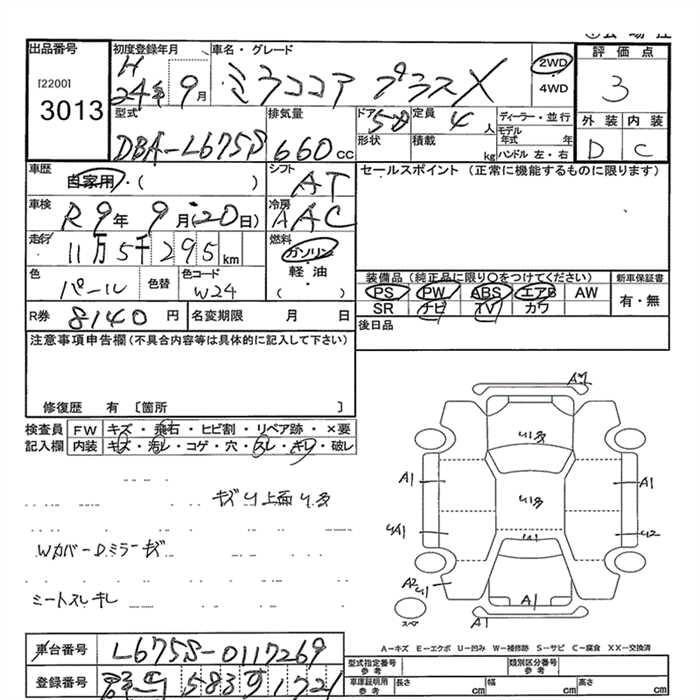 出品番号
[2200]
3013
初度登録年月
H
24年 9月
車名・グレード
ミラココア プラスX
2WD
4WD
評価点
3
外装 内装
D C
型式
DBA-L675S
排気量
660cc
ドア
5D
形状
定員
4人
積載
kg
ディーラー・並行
モデル年式 年
ハンドル 左・右
車歴
自家用・( )
シフト
AT
セールスポイント (正常に機能するものに限ります)
車検
R9年 9月(20日)
冷房
AAC
走行
11万5千295km
燃料
ガソリン
軽・油
( )
色
パール
色替
色コード
W24
装備品(純正品に限り○をつけてください)
PS PW ABS エアB AW
SR ナビ TV カワ
新車保証書
有・無
R券 8140円
名変期限 月 日
後日品
注意事項申告欄(不具合内容等は具体的に記入して下さい)
修復歴 有 〔箇所 〕
検査員記入欄
FW キズ・飛石・ヒビ割・リペア跡・×要
内装 キズ・汚レ・コゲ・穴・スレ・キレ・破レ
キズU上面U多
Wカバー Dミラーキズ
シートスレキレ
A1
U1多
A1
A1
U1多
UA1
U2
U1
A2
U1
A1
A1
スペア
A-キズ E-エクボ U-凹み W-補修跡 S-サビ C-腐食 XX-交換済
車台番号 L675S-0117269
登録番号
583
1721
型式指定番号
参考
類別区分番号
参考
車庫証明用
参考
長さ cm 幅 cm 高さ cm